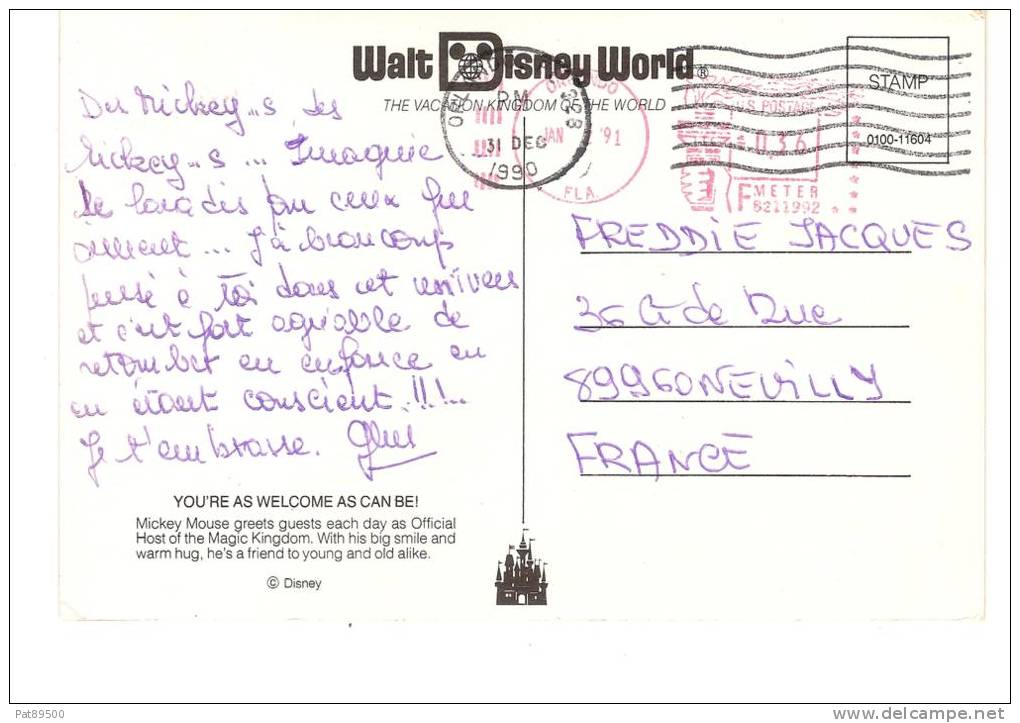 Walt Disney World®
THE VACATION KINGDOM OF THE WORLD
ORLANDO
PM
328
31 DEC
1990
ORLANDO
JAN '91
FLA.
U.S. POSTAGE
0.36
METER
8211992
STAMP
0100-11604
Des Mickey..s des
Mickey..s... Imaginie
le paradis pour ceux qui
aiment... J'ai beaucoup
pensé à toi dans cet univers
et c'est fort agréable de
retomber en enfance en
en étant conscient.!!!..
Je t'embrasse.
FREDDIE JACQUES
36 G de Rue
89960 NEUILLY
FRANCE
YOU'RE AS WELCOME AS CAN BE!
Mickey Mouse greets guests each day as Official
Host of the Magic Kingdom. With his big smile and
warm hug, he's a friend to young and old alike.
© Disney
Pat89500
www.delcampe.net